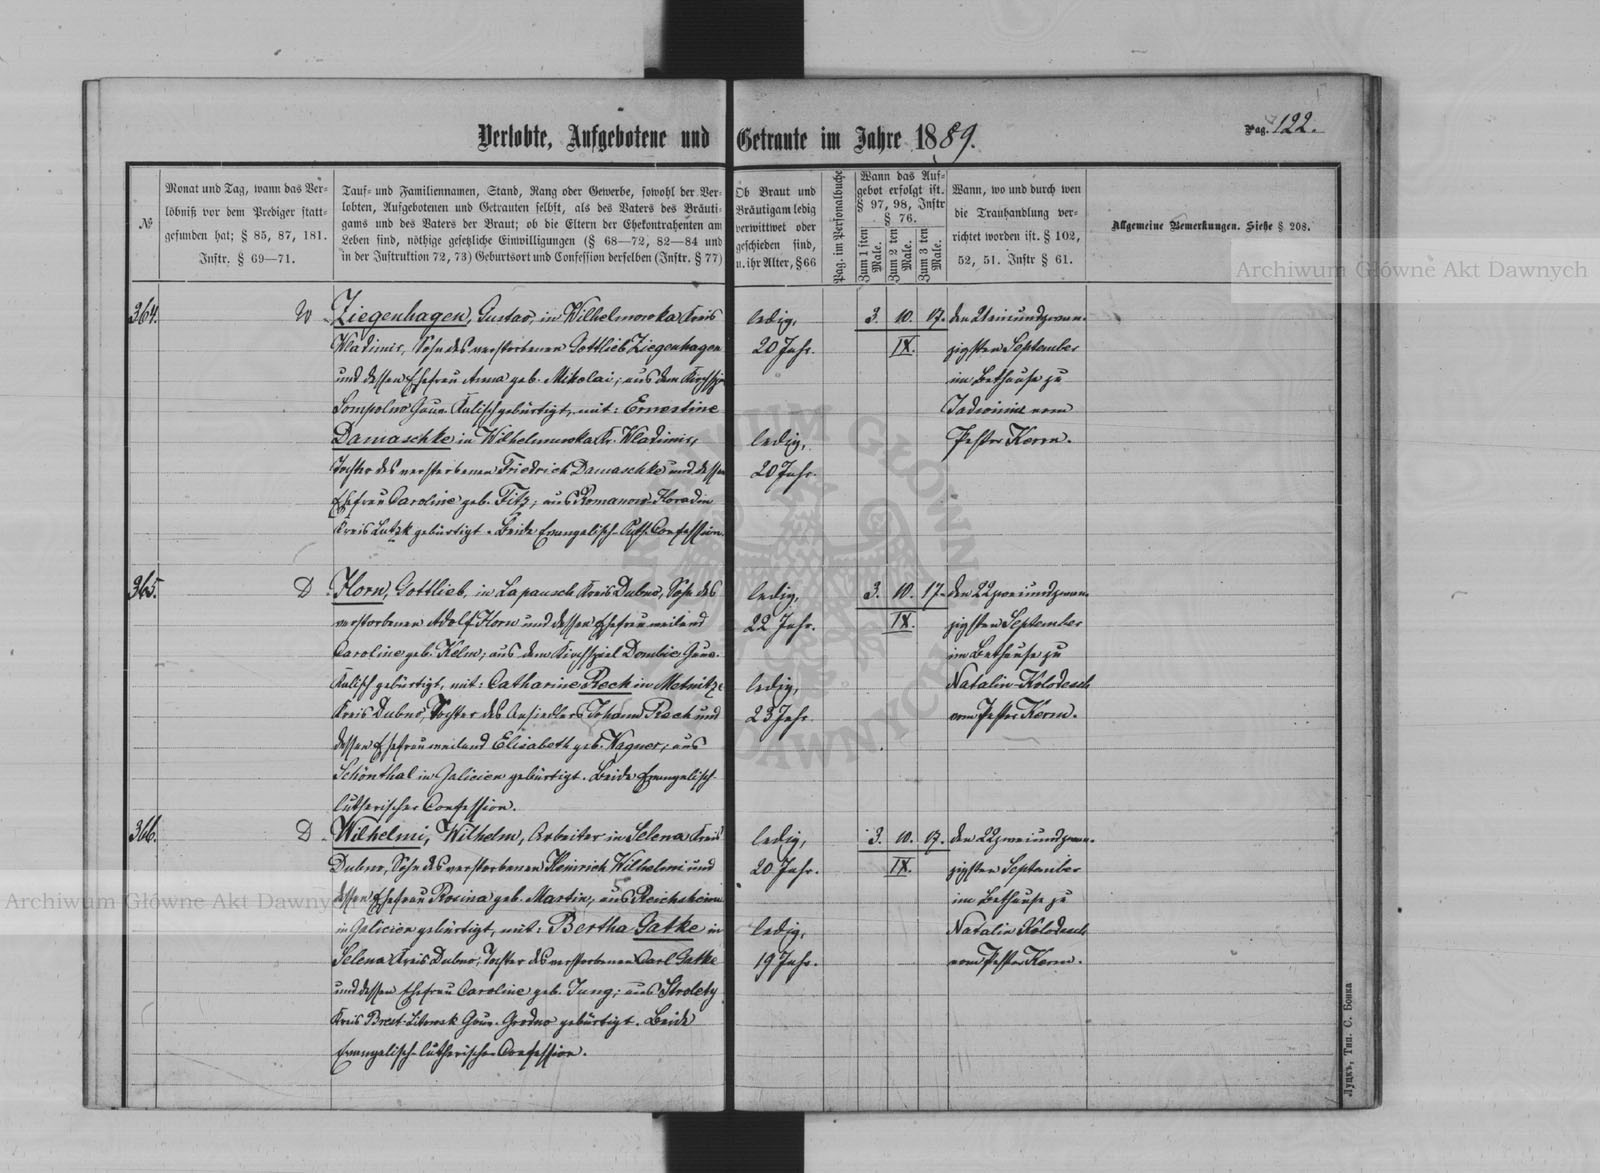 Verlobte, Aufgebotene und Getraute im Jahre 1889.
Pag. 122.
№
Monat und Tag, wann das Ver-
löbniß vor dem Prediger statt-
gefunden hat; § 85, 87, 181.
Instr. § 69—71.
Tauf- und Familiennamen, Stand, Rang oder Gewerbe, sowohl der Ver-
lobten, Aufgebotenen und Getrauten selbst, als des Vaters des Bräuti-
gams und des Vaters der Braut; ob die Eltern der Ehekontrahenten am
Leben sind, nöthige gesetzliche Einwilligungen (§ 68—72, 82—84 und
in der Instruktion 72, 73) Geburtsort und Confession derselben (Instr. § 77)
Ob Braut und
Bräutigam ledig
verwittwet oder
geschieden sind,
u. ihr Alter, § 66
Pag. im Personalbuche
Wann das Auf-
gebot erfolgt ist.
§ 97, 98, Instr
§ 76.
Zum 1 sten Male.
Zum 2 ten Male.
Zum 3 ten Male.
Wann, wo und durch wen
die Trauhandlung ver-
richtet worden ist. § 102,
52, 51. Instr § 61.
Allgemeine Bemerkungen. Siehe § 208.
Archiwum Główne Akt Dawnych
364.
W
Ziegenhagen, Gustav, in Wilhelmowka Kreis
Wladimir, Sohn des verstorbenen Gottlieb Ziegenhagen
und dessen Ehefrau Anna geb. Mikolai; aus dem Kirchspiel
Sompolno Gouv. Kalisch gebürtigt, mit: Ernestine
Damaschke in Wilhelmowka Kr. Wladimir,
Tochter des verstorbenen Friedrich Damaschke und dessen
Ehefrau Caroline geb. Fitz; aus Romanow
Kreis Lutzk gebürtigt. Beide Evangelisch-Luth. Confession.
ledig,
20 Jahr.
ledig,
20 Jahr.
3. 10. 17.
IX.
den 21 einundzwan-
zigsten September
im Bethause zu
vom
Pastor Kerm.
365.
D
Horn, Gottlieb, in Lapausch Kreis Dubno, Sohn des
verstorbenen Adolf Horn und dessen Ehefrau weiland
Caroline geb. Kelm; aus dem Kirchspiel Dombie Gouv.
Kalisch gebürtigt, mit: Catharine Reck in
Kreis Dubno, Tochter des Ansiedlers Johann Reck und
dessen Ehefrau weiland Elisabeth geb. Wagner; aus
Schönthal in Galicien gebürtigt. Beide Evangelisch-
lutherischer Confession.
ledig,
22 Jahr.
ledig,
23 Jahr.
3. 10. 17.
IX.
den 22 zweiundzwan-
zigsten September
im Bethause zu
Natalin Kolodesch
vom Pastor Kerm.
366.
D
Wilhelmi, Wilhelm, Arbeiter in Selena Kreis
Dubno, Sohn des verstorbenen Heinrich Wilhelmi und
dessen Ehefrau Rosina geb. Martin; aus Reichsheim
in Galicien gebürtigt, mit: Bertha Gatke in
Selena Kreis Dubno, Tochter des verstorbenen Carl Gatke
und dessen Ehefrau Caroline geb. Jung; aus
Kreis Brest-Litowsk Gouv. Grodno gebürtigt. Beide
Evangelisch-lutherischer Confession.
ledig,
20 Jahr.
ledig,
19 Jahr.
3. 10. 17.
IX.
den 22 zweiundzwan-
zigsten September
im Bethause zu
Natalin Kolodesch
vom Pastor Kerm.
Archiwum Główne Akt Dawnych
ARCHIWUM GŁÓWNE AKT DAWNYCH
Луцкъ, Тип. С. Бонка